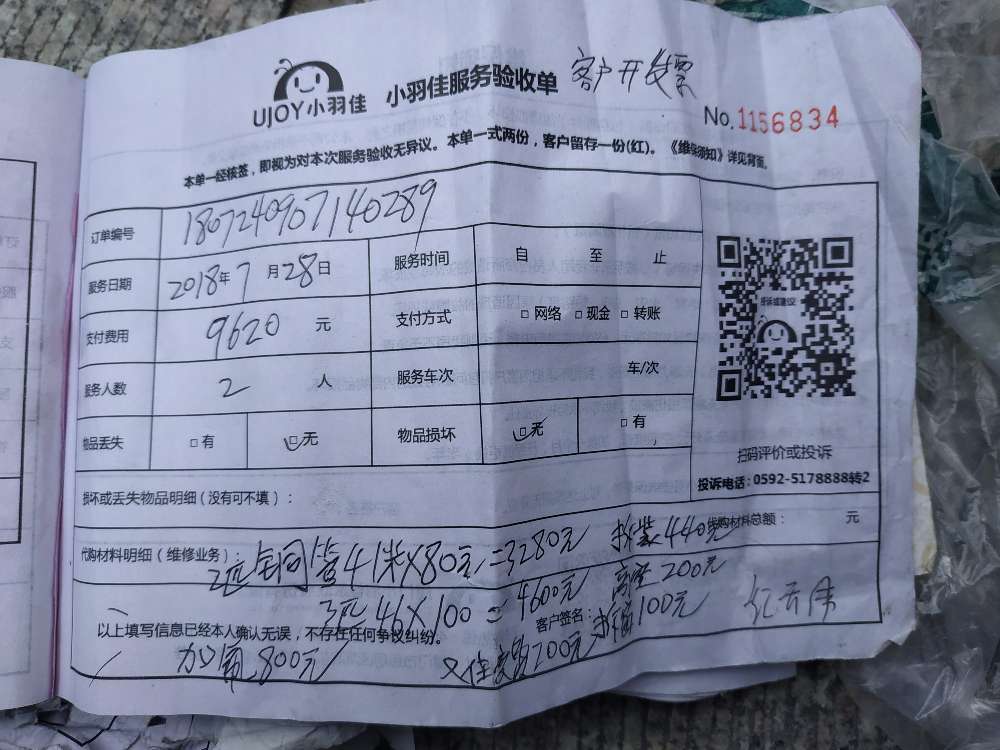 客户开发票
UJOY小羽佳 小羽佳服务验收单
No.1156834
本单一经核签，即视为对本次服务验收无异议。本单一式两份，客户留存一份(红)。《维保须知》详见背面。
订单编号 1807240907140289
服务日期 2018年7月28日 服务时间 自 至 止
支付费用 9620 元 支付方式 □网络 □现金 □转账
服务人数 2 人 服务车次 车/次
物品丢失 □有 □无 物品损坏 □无 □有
投诉或建议
扫码评价或投诉
投诉电话：0592-5178888转2
损坏或丢失物品明细（没有可不填）：
代购材料明细（维修业务）： 代购材料总额： 元
2匹全铜管41米×80元=3280元 拆装440元
3匹46×100=4600元 高空200元
以上填写信息已经本人确认无误，不存在任何争议纠纷。 客户签名：
加氟800元 200元 100元